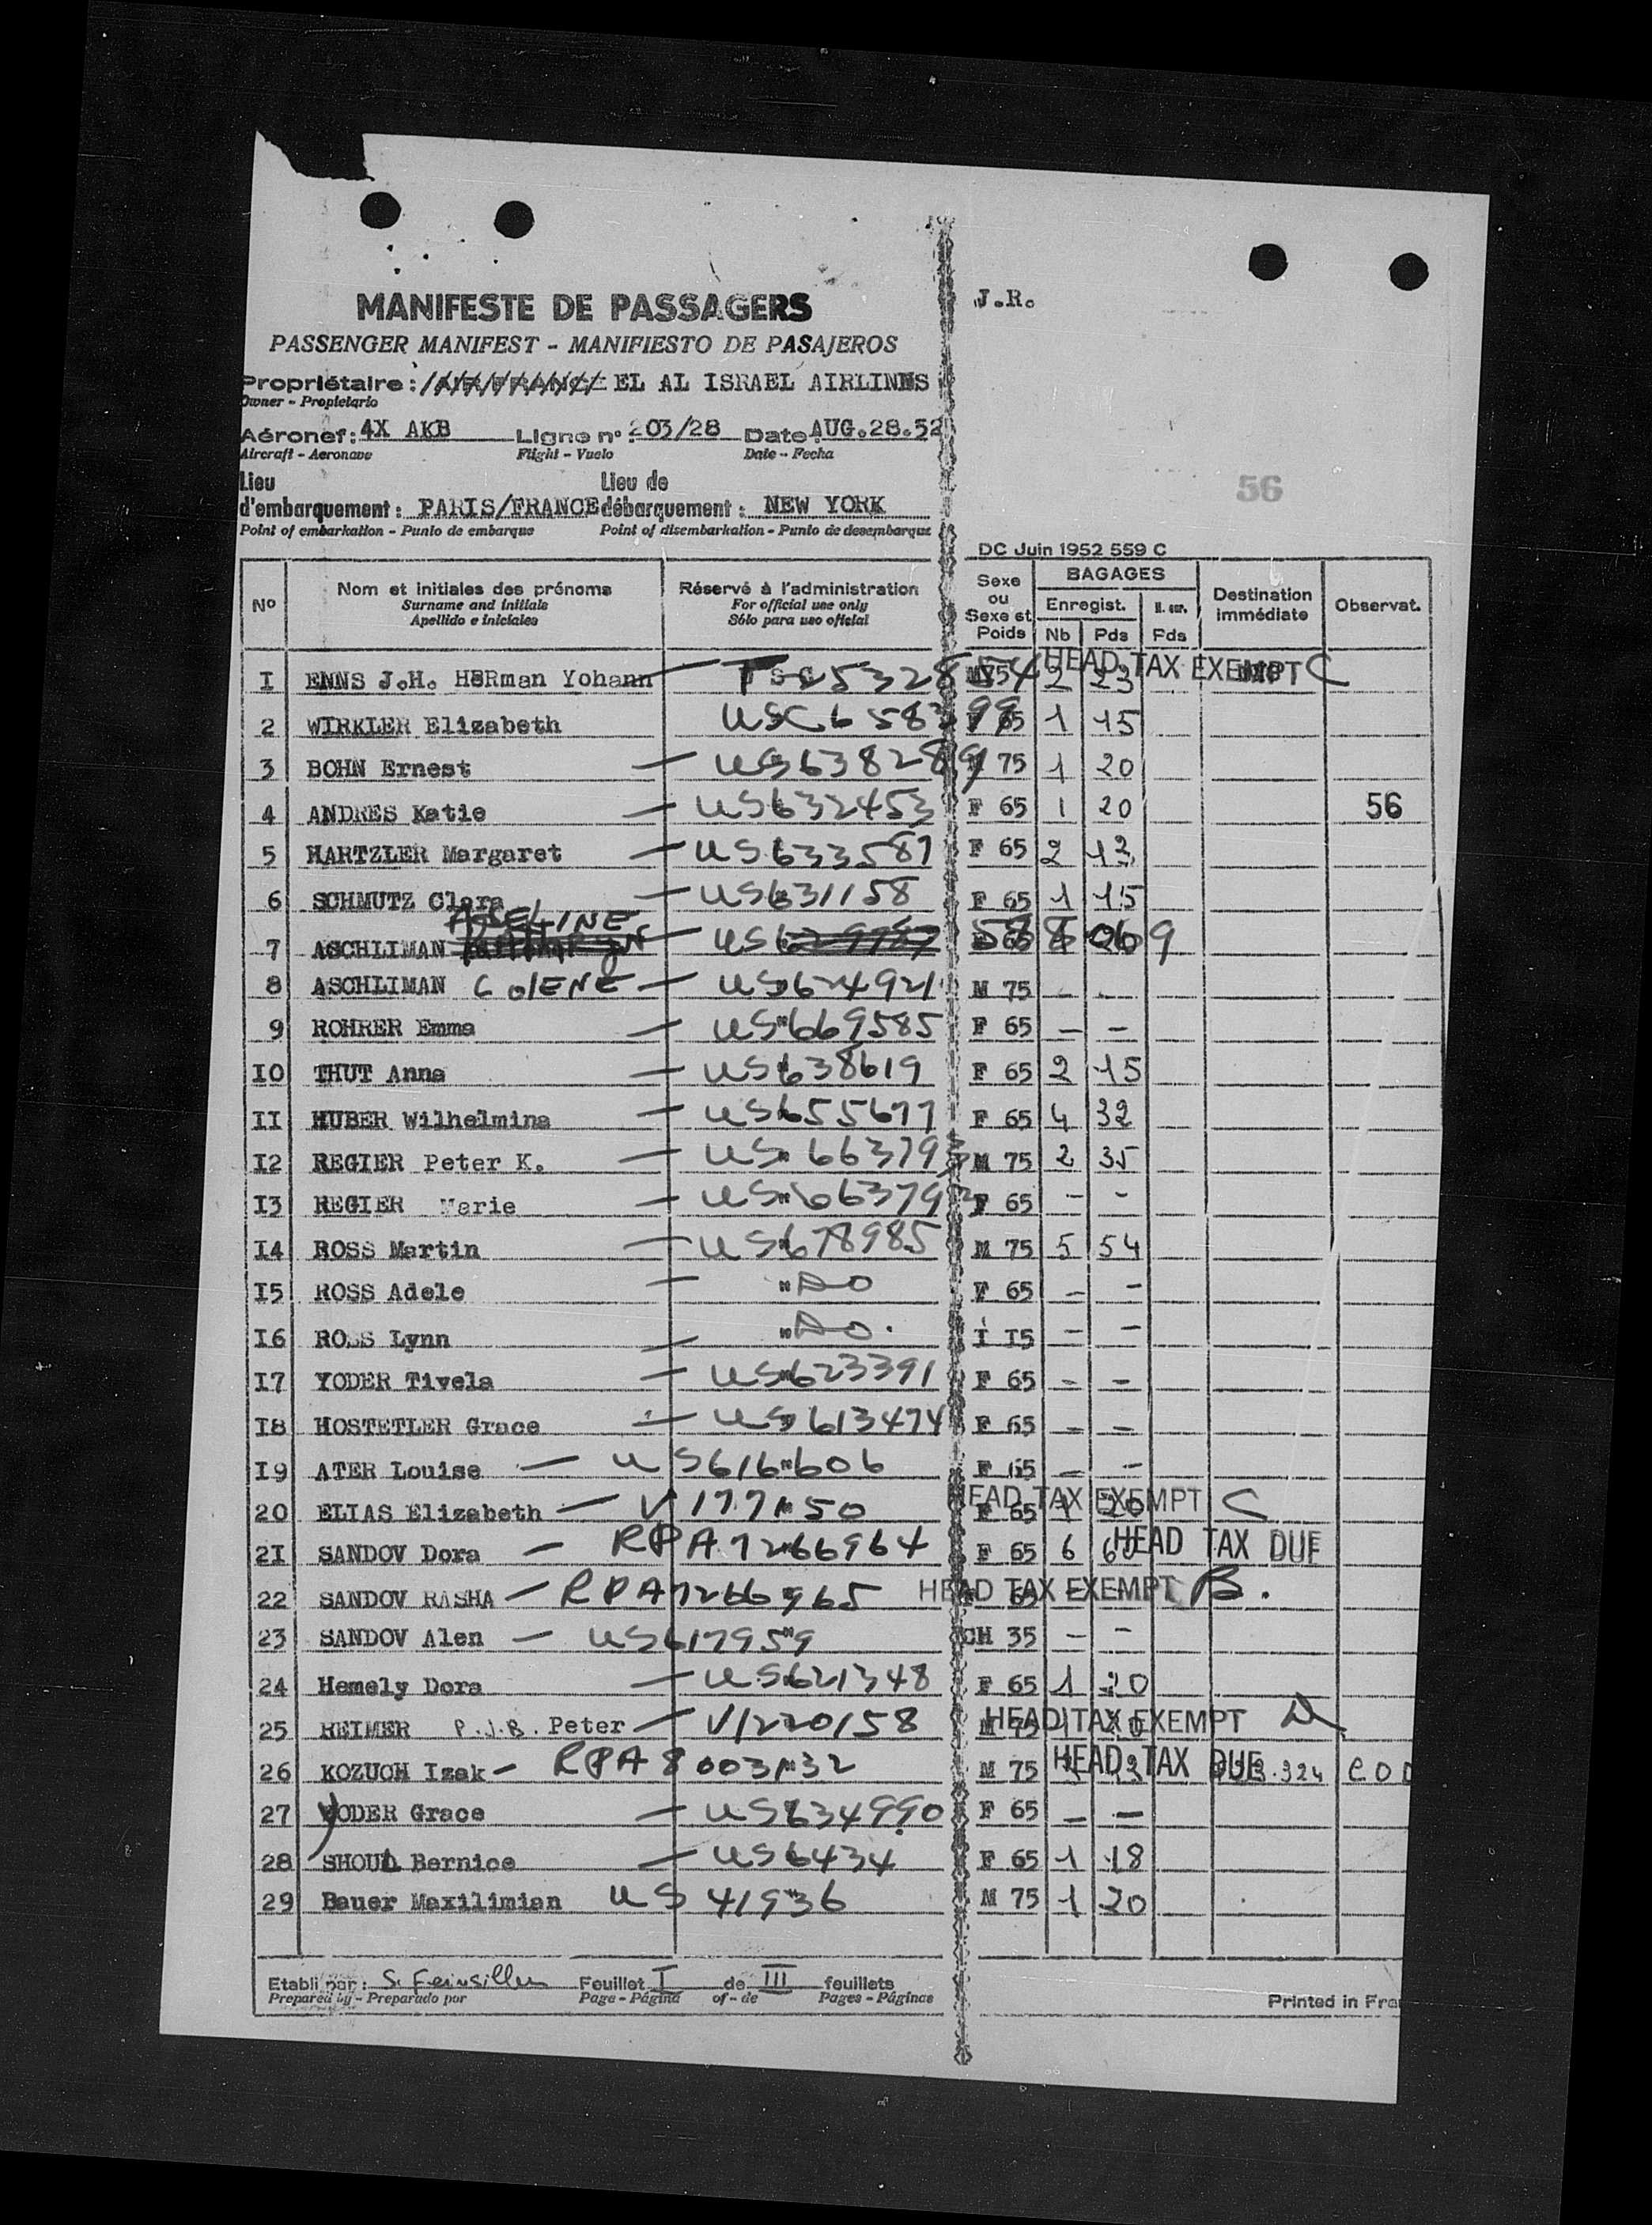 MANIFESTE DE PASSAGERS
J.R.
PASSENGER MANIFEST - MANIFIESTO DE PASAJEROS
Propriétaire : AIR FRANCE EL AL ISRAEL AIRLINES
Owner - Propietario
Aéronef: 4X AKB Ligne n° 203/28 Date AUG.28.52
Aircraft - Aeronave Flight - Vuelo Date - Fecha
56
Lieu Lieu de
d'embarquement : PARIS/FRANCE débarquement : NEW YORK
Point of embarkation - Punto de embarque Point of disembarkation - Punto de desembarque
DC Juin 1952 559 C
N° Nom et initiales des prénoms Réservé à l'administration Sexe ou Sexe et Poids BAGAGES Destination immédiate Observat.
Surname and initials For official use only Enregist.
Apellido e iniciales Sólo para uso oficial Nb Pds Pds
I ENNS J.H. HERman Yohann 2 23 HEAD TAX EXEMPT C
2 WIRKLER Elizabeth 65 1 15
3 BOHN Ernest 75 1 20
4 ANDRES Katie US632453 F 65 1 20 56
5 HARTZLER Margaret US633587 F 65 2 13
6 SCHMUTZ Clara US631158 F 65 1 15
7 ASCHLIMAN ADELINE US
8 ASCHLIMAN COLENE US624921 M 75 - -
9 ROHRER Emma US669585 F 65 - -
I0 THUT Anna US638619 F 65 2 15
II HUBER Wilhelmina US655677 F 65 4 32
I2 REGIER Peter K. US663793 M 75 2 35
I3 REGIER Marie US663792 F 65 - -
I4 ROSS Martin US678985 M 75 5 54
I5 ROSS Adele "Do F 65 - -
I6 ROSS Lynn "Do. I I5 - -
I7 YODER Tivela US623391 F 65 - -
I8 HOSTETLER Grace US613474 F 65 - -
I9 ATER Louise US616606 F 65 - -
20 ELIAS Elizabeth V177150 F 65 1 20 HEAD TAX EXEMPT C
2I SANDOV Dora RPA7266964 F 65 6 HEAD TAX DUE
22 SANDOV RASHA RPA7266965 65 HEAD TAX EXEMPT B.
23 SANDOV Alen US617959 CH 35 - -
24 Hemely Dora US621348 F 65 1 20
25 REIMER P.J.B. Peter V1220158 M 75 HEAD TAX EXEMPT
26 KOZUCH Izak RPA8003132 M 75 HEAD TAX DUE
27 YODER Grace US634990 F 65 - -
28 SHOUL Bernice US6434 F 65 1 18
29 Bauer Maximilian US 41936 M 75 1 20
Etabli par : S. Feuillet I de III feuillets
Prepared by - Preparado por Page - Página of - de Pages - Páginas
Printed in Fra